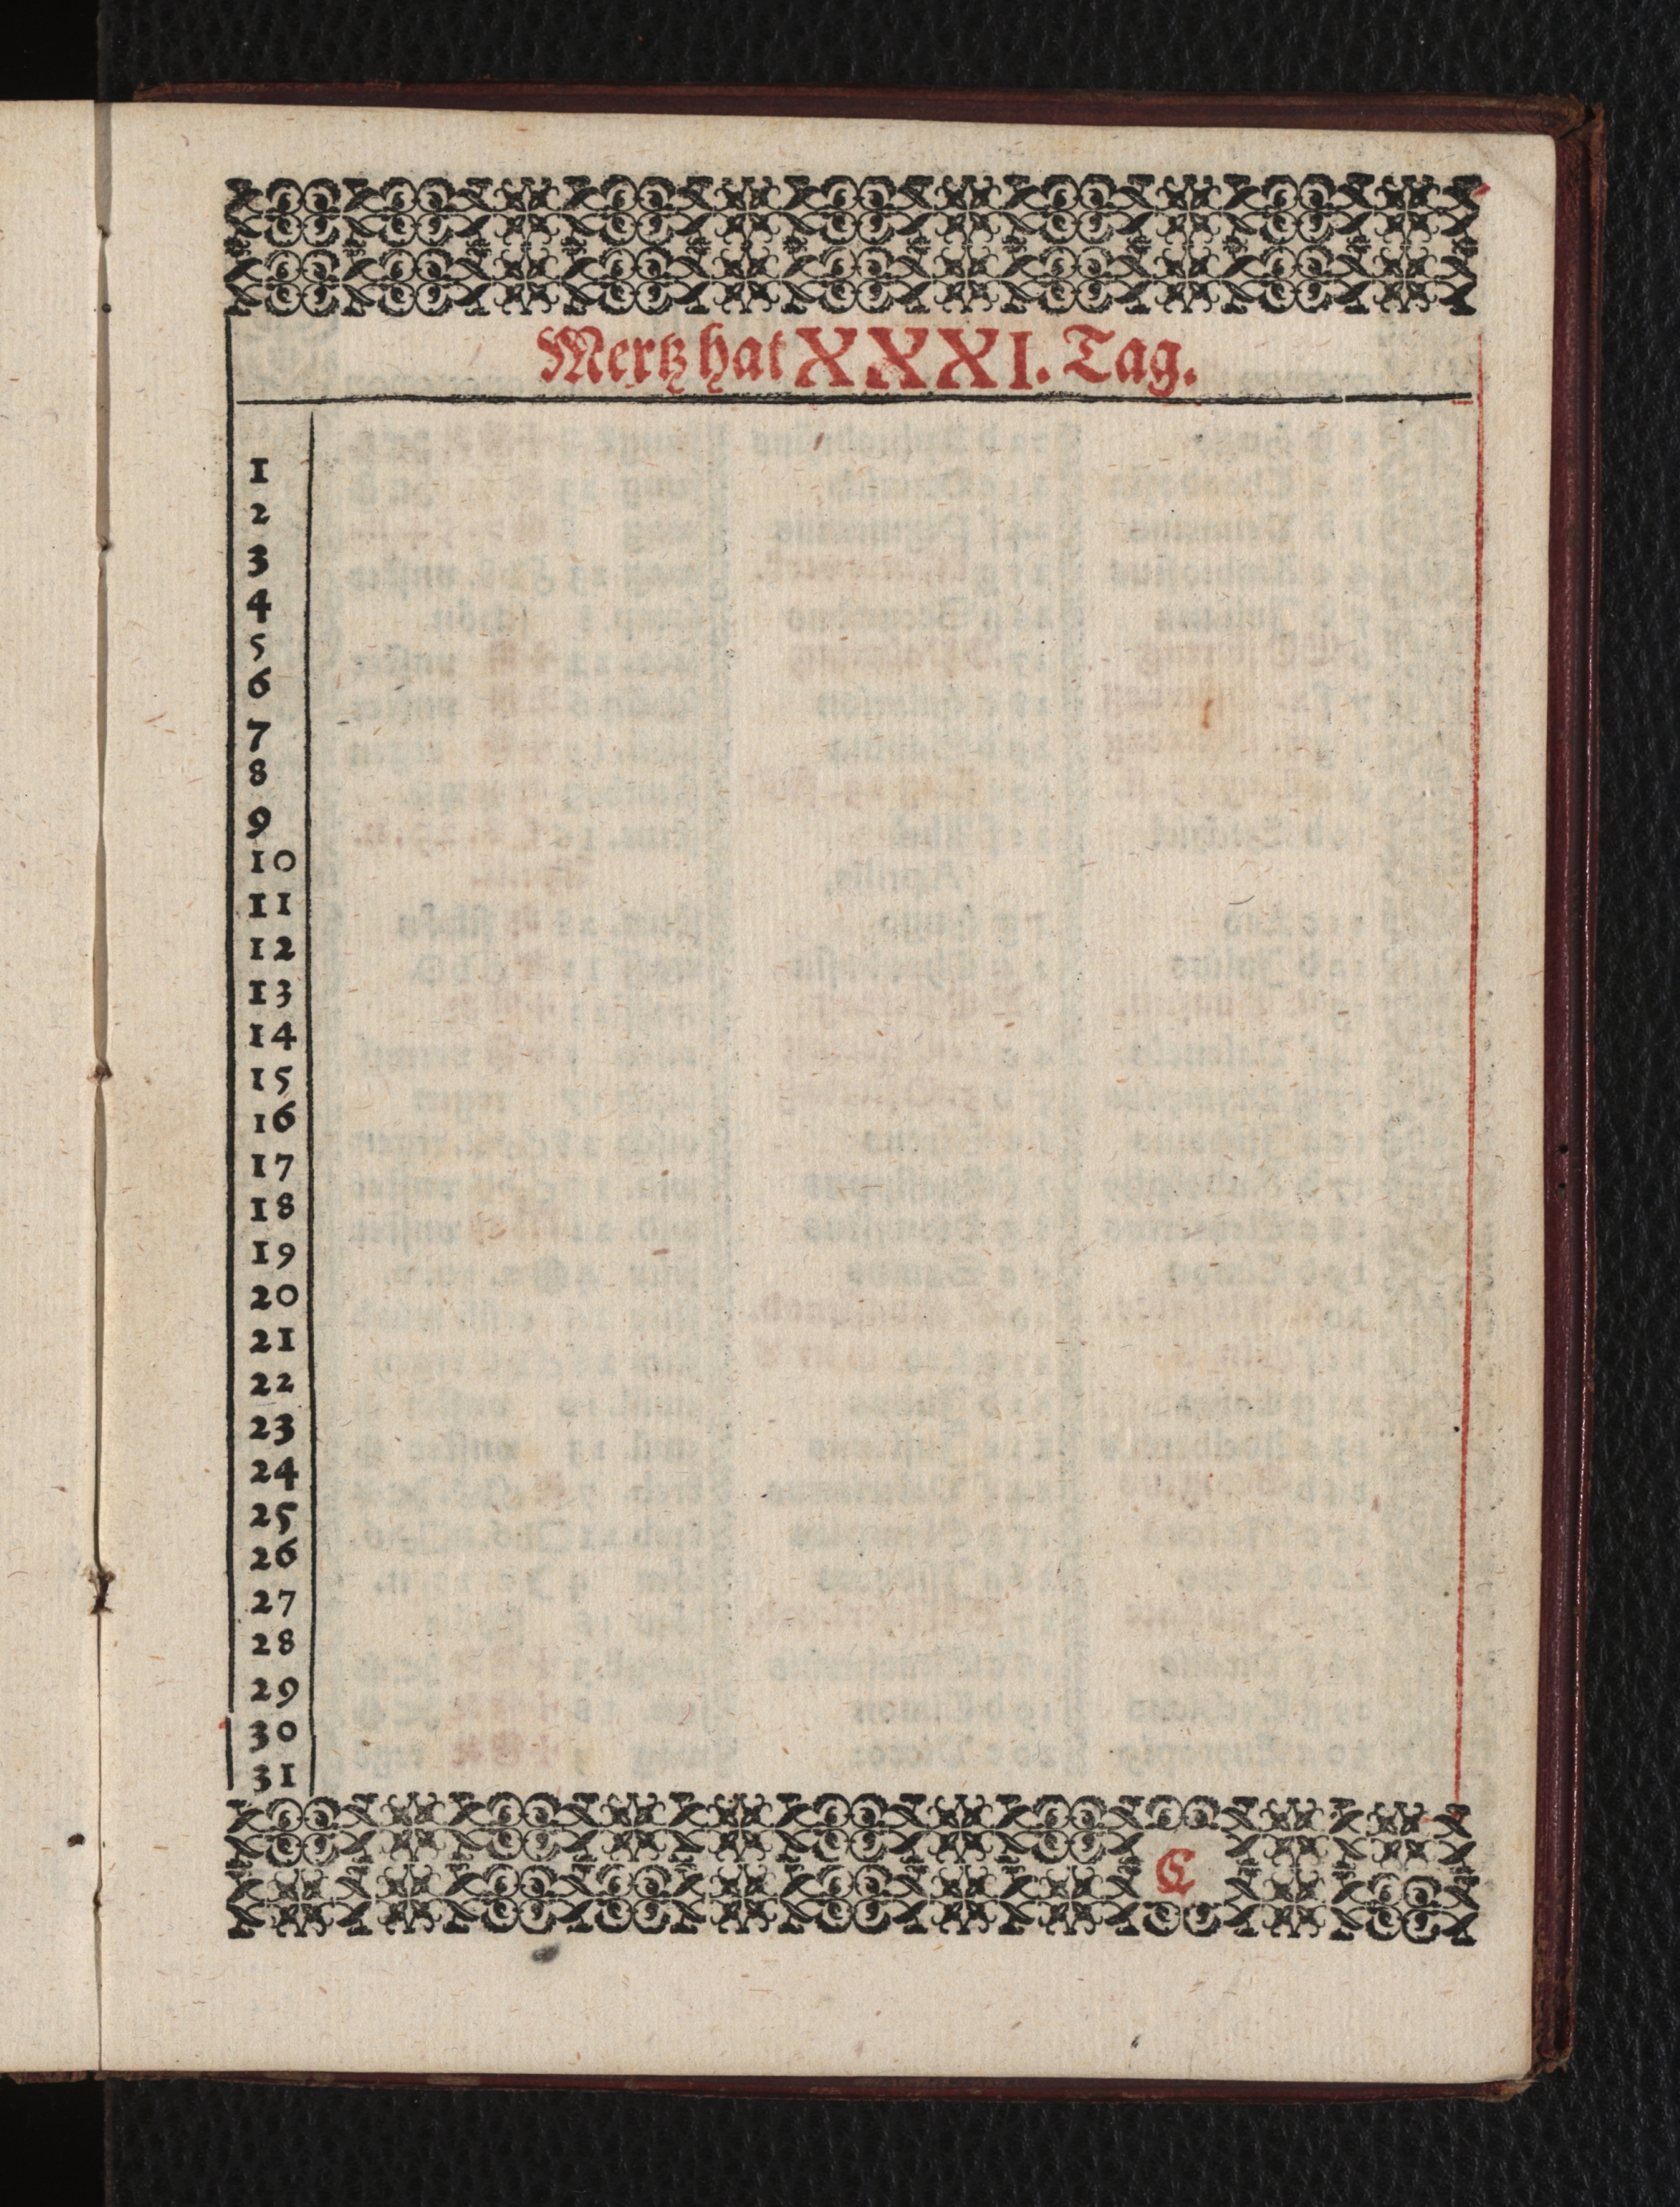 Mertz hat XXXI. Tag.
1
2
3
4
5
6
7
8
9
10
11
12
13
14
15
16
17
18
19
20
21
22
23
24
25
26
27
28
29
30
31
C